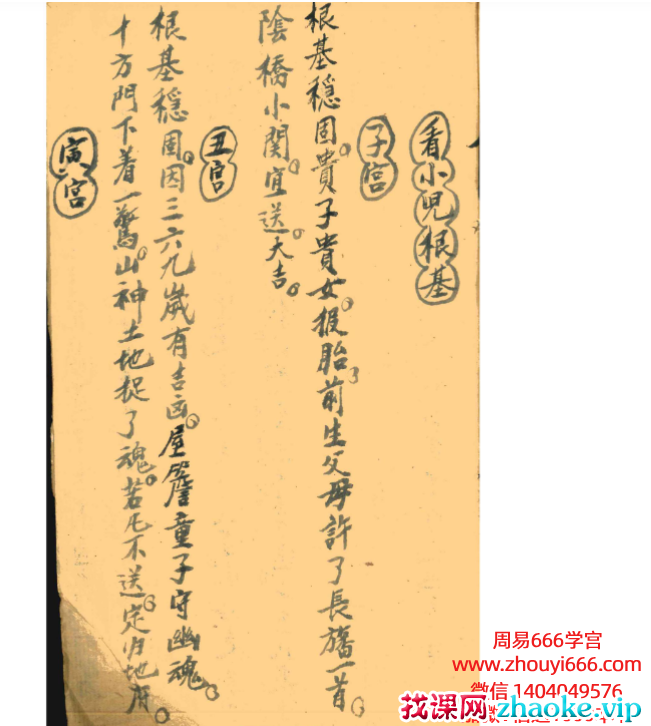 看小児根基
子宫
根基穩固。貴子貴女。投胎前生父母許了長旛一首。
陰橋小関。宜送。大吉。
丑宫
根基穩固。因三六九歲有吉凶。屋簷童子守幽魂。
十方門下着一驚。山神土地捉了魂。若凡不送。定归地府。
寅宫
周易666学宫
www.zhouyi666.com
微信 1404049576
找课网 zhaoke.vip